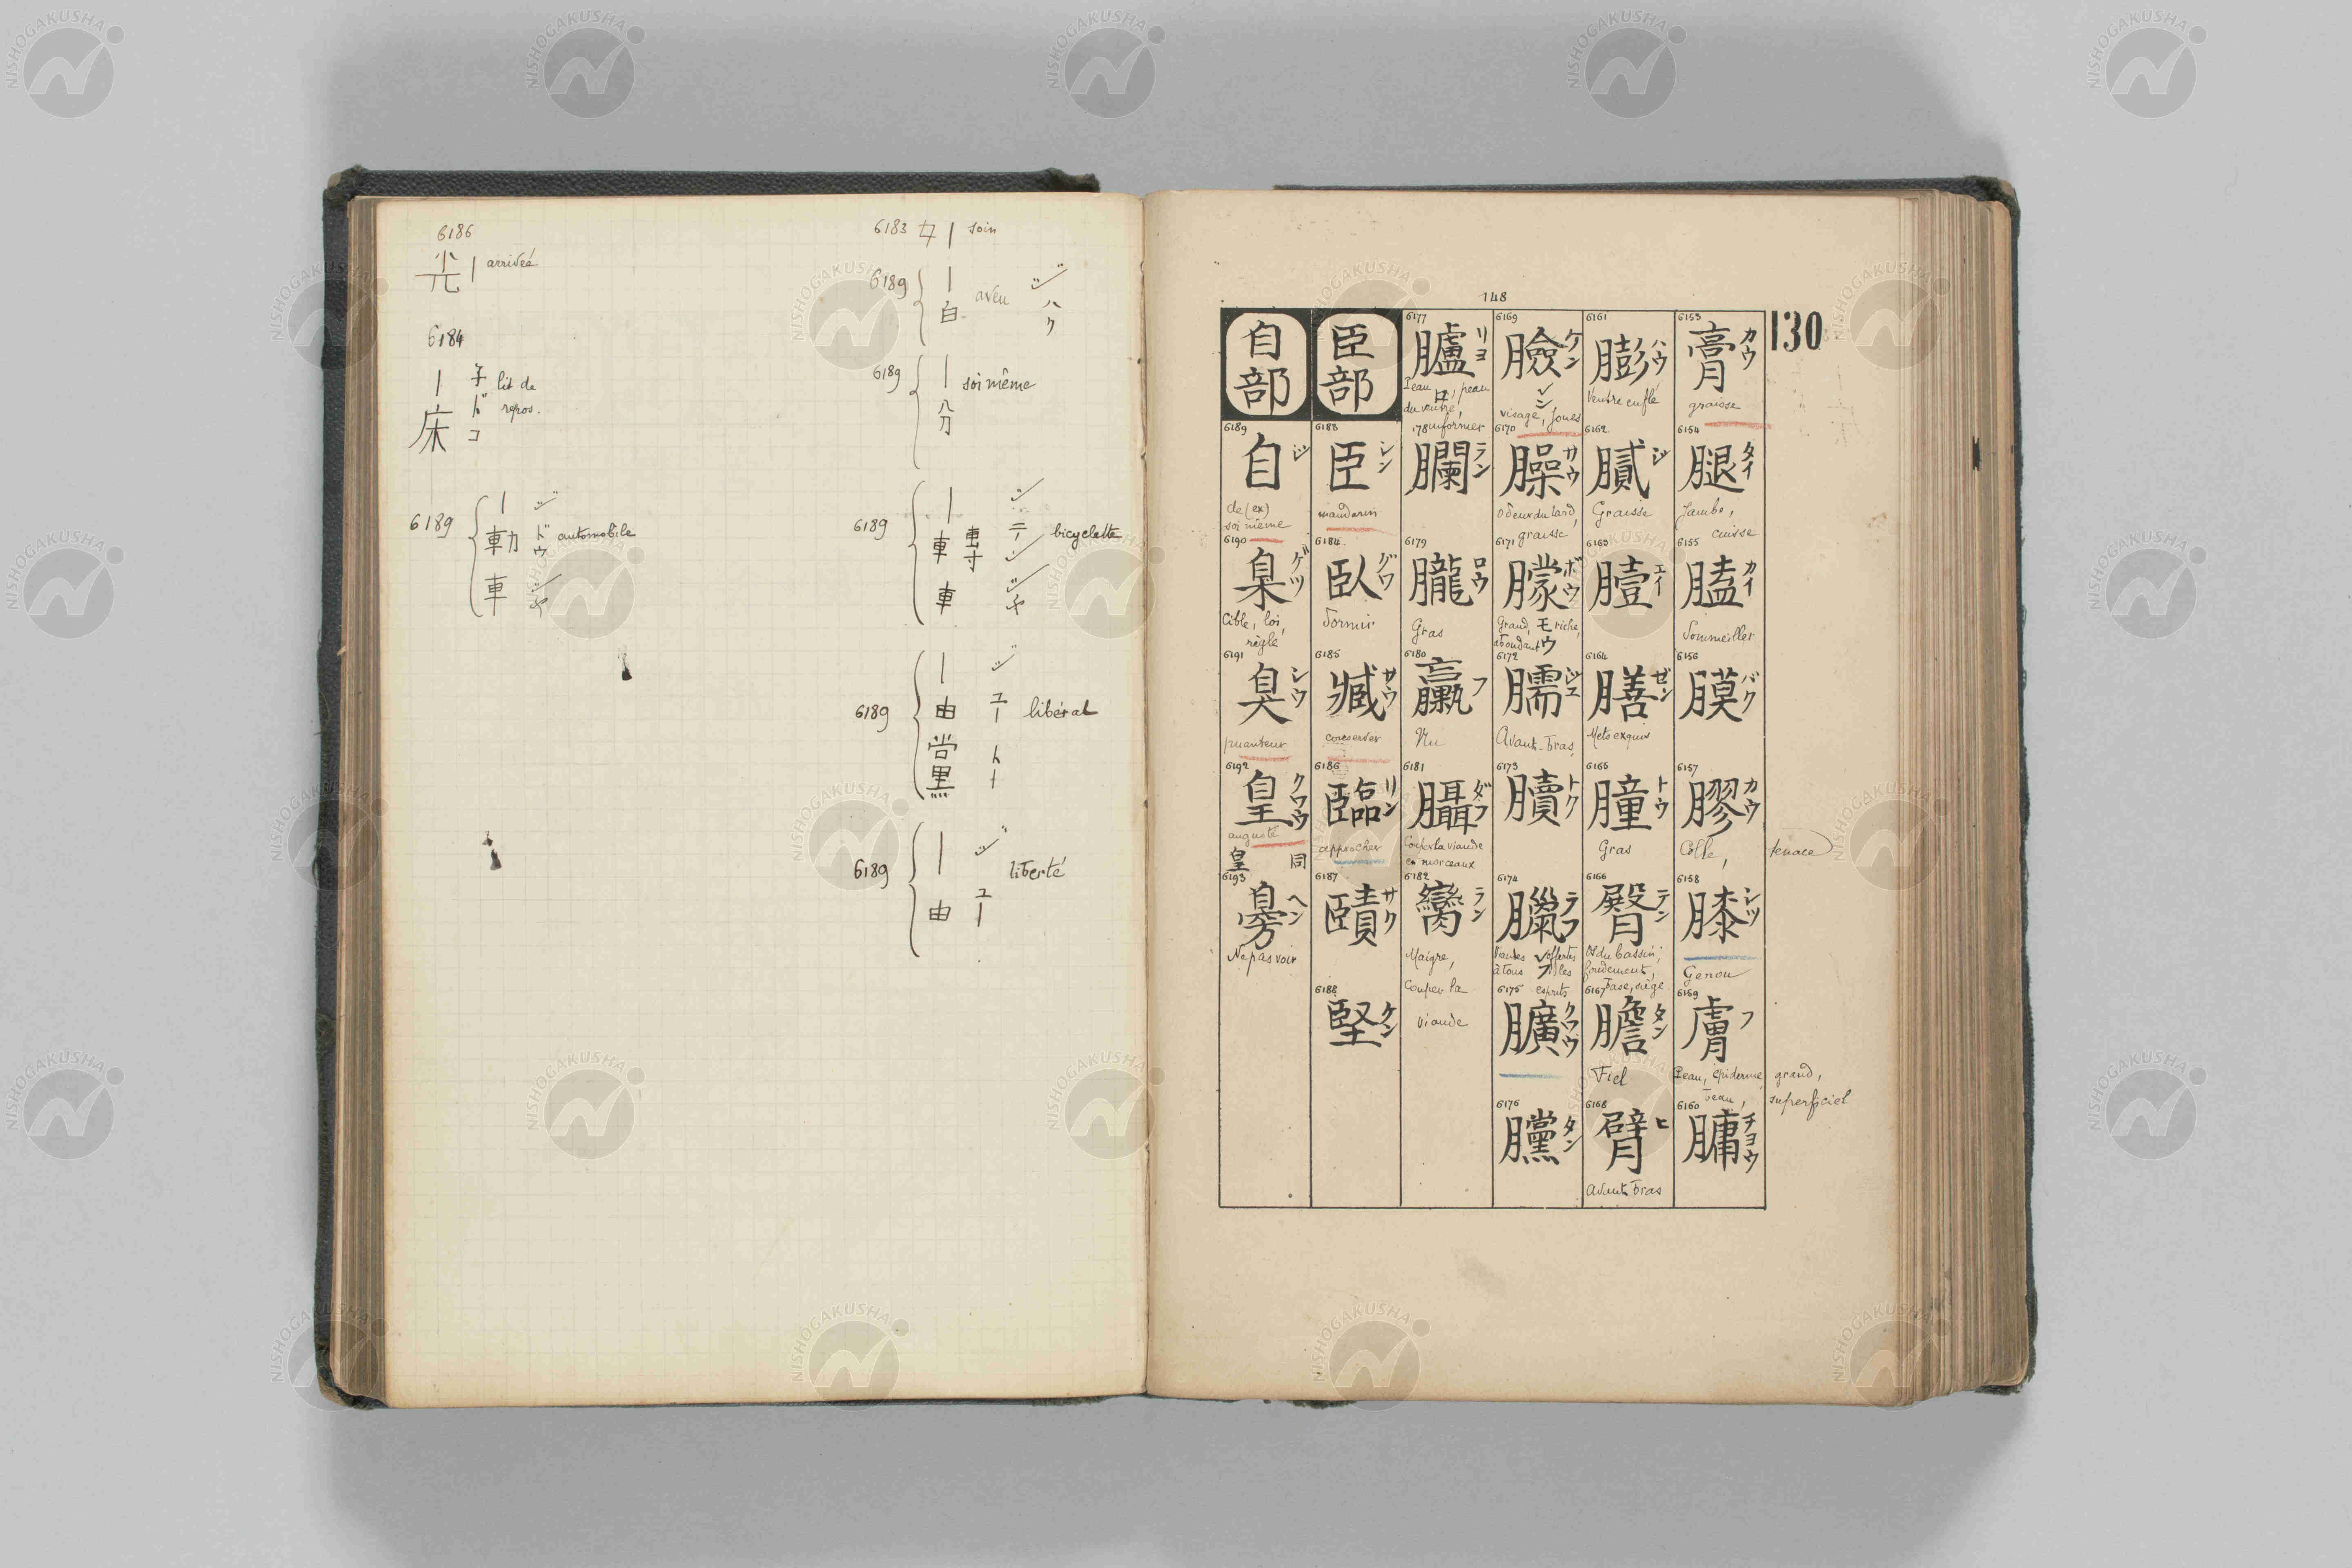 6186
光｜ arrivée
6184
｜床 子ドコ lit de repos.
6189 ｜動車 ジドウジヤ automobile
6183 ｜ soin
6189 ｜白 aveu ジハク
6189 ｜分 soi même
6189 ｜転車 ジテンシヤ bicyclette
6189 ｜由党 ジユート libéral
6189 ｜由 ジユー liberté
148
130
6153 膏 カウ graisse
6154 腿 タイ Jambe, cuisse
6155 瞌 カイ Sommeiller
6156 膜 バク
6157 膠 カウ Colle, tenace
6158 膝 シツ Genou
6159 膚 フ Peau, épiderme, beau, grand, superficiel
6160 膅 チヨウ
6161 膨 ハウ Ventre enflé
6162 膩 ジ Graisse
6163 曀 エイ
6164 膳 ゼン Mets exquis
6165 膧 トウ Gras
6166 臀 テン Os du bassin, fondement, base, siège
6167 膽 タン Fiel
6168 臂 ヒ Avant-bras
6169 臉 ケン レン visage, joues
6170 臊 サウ Odeur du lard, graisse
6171 朦 ボウ モウ Grand, riche, abondant
6172 臑 ジユ Avant-bras
6173 贖 トク
6174 臘 ラフ Viandes offertes à tous les esprits
6175 臄 クワウ
6176 臜 タン
6177 臚 リヨ ロ Peau, peau du ventre, informer
178 臈 ラン
6179 朧 ロウ Gras
6180 臝 フ Nu
6181 ダフ Couper la viande en morceaux
6182 臠 ラン Maigre, couper la viande
臣部
6183 臣 シン mandarin
6184 臥 グワ Dormir
6185 臧 サウ conserver
6186 臨 リン approcher
6187 賾 サク
6188 堅 ケン
自部
6189 自 ジ de (ex) soi même
6190 臬 ゲツ Cible, loi, règle
6191 臭 シウ puanteur
6192 皇 クワウ auguste
皇 同
6193 臱 ヘン Ne pas voir
NISHOGAKUSHA